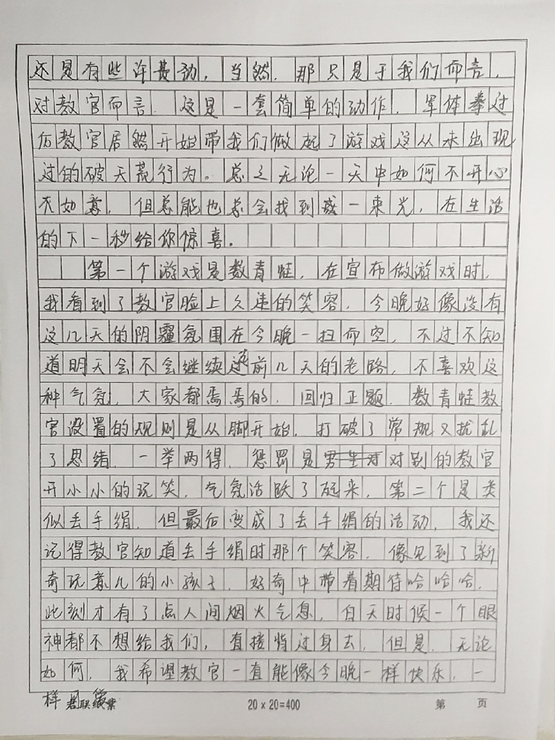 还是有些许费劲，当然，那只是于我们而言，
对教官而言，这是一套简单的动作，军体拳过
后教官居然开始带我们做起了游戏这从未出现
过的破天荒行为。总之无论一天中如何不开心
不如意，但总能也总会找到或一束光，在生活
的下一秒给你惊喜。
第一个游戏是数青蛙，在宣布做游戏时，
我看到了教官脸上久违的笑容，今晚好像没有
这几天的阴霾氛围在今晚一扫而空，不过不知
道明天会不会继续这前几天的老路，不喜欢这
种气氛，大家都焉焉的，回归正题，数青蛙教
官设置的规则是从脚开始，打破了常规又扰乱
了思绪，一举两得，惩罚是对别的教官
开小小的玩笑，气氛活跃了起来，第二个是类
似丢手绢，但最后变成了丢手绢的活动，我还
记得教官知道丢手绢时那个笑容，像见到了新
奇玩意儿的小孩子，好奇中带着期待哈哈哈，
此刻才有了点人间烟火气息，白天时候一个眼
神都不想给我们，直接背过身去，但是，无论
如何，我希望教官一直能像今晚一样快乐，一
样
20×20=400 第 页